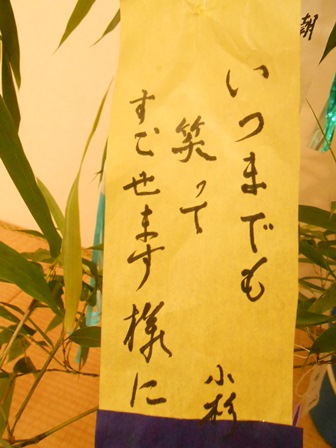 いつまでも
笑って
すごせます様に
小杉
朝